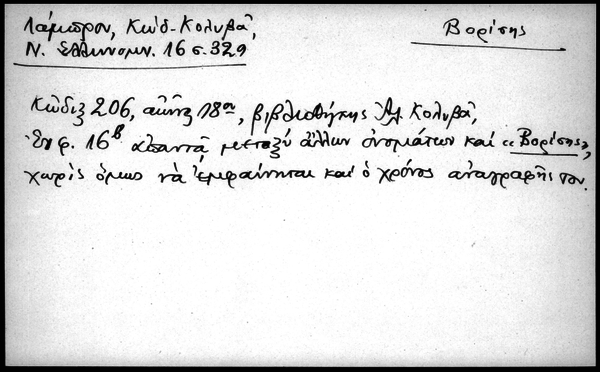 Λάμπρου, Κώδ. Κολυβᾶ,
Βορίσης
Ν. Ἑλληνομν. 16 σ. 329
Κώδιξ 206, αἰῶνος 18ου, βιβλιοθήκης Ἀλ. Κολυβᾶ,
Ἐν φ. 16β ἀπαντᾷ μεταξύ ἄλλων ὀνομάτων καί «Βορίσης»,
χωρίς ὅμως νὰ ἐμφαίνηται καί ὁ χρόνος ἀναγραφῆς του.